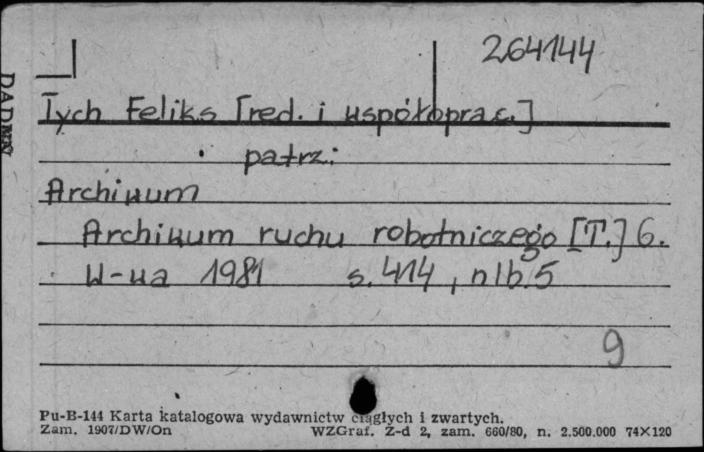 264144
Tych Feliks [red. i współoprac.]
patrz:
Archiwum
Archiwum ruchu robotniczego [T.] 6.
W-wa 1981 s. 414, nlb. 5
9
Pu-B-144 Karta katalogowa wydawnictw ciągłych i zwartych.
Zam. 1907/DW/On WZGraf. Z-d 2, zam. 660/80, n. 2.500.000 74×120